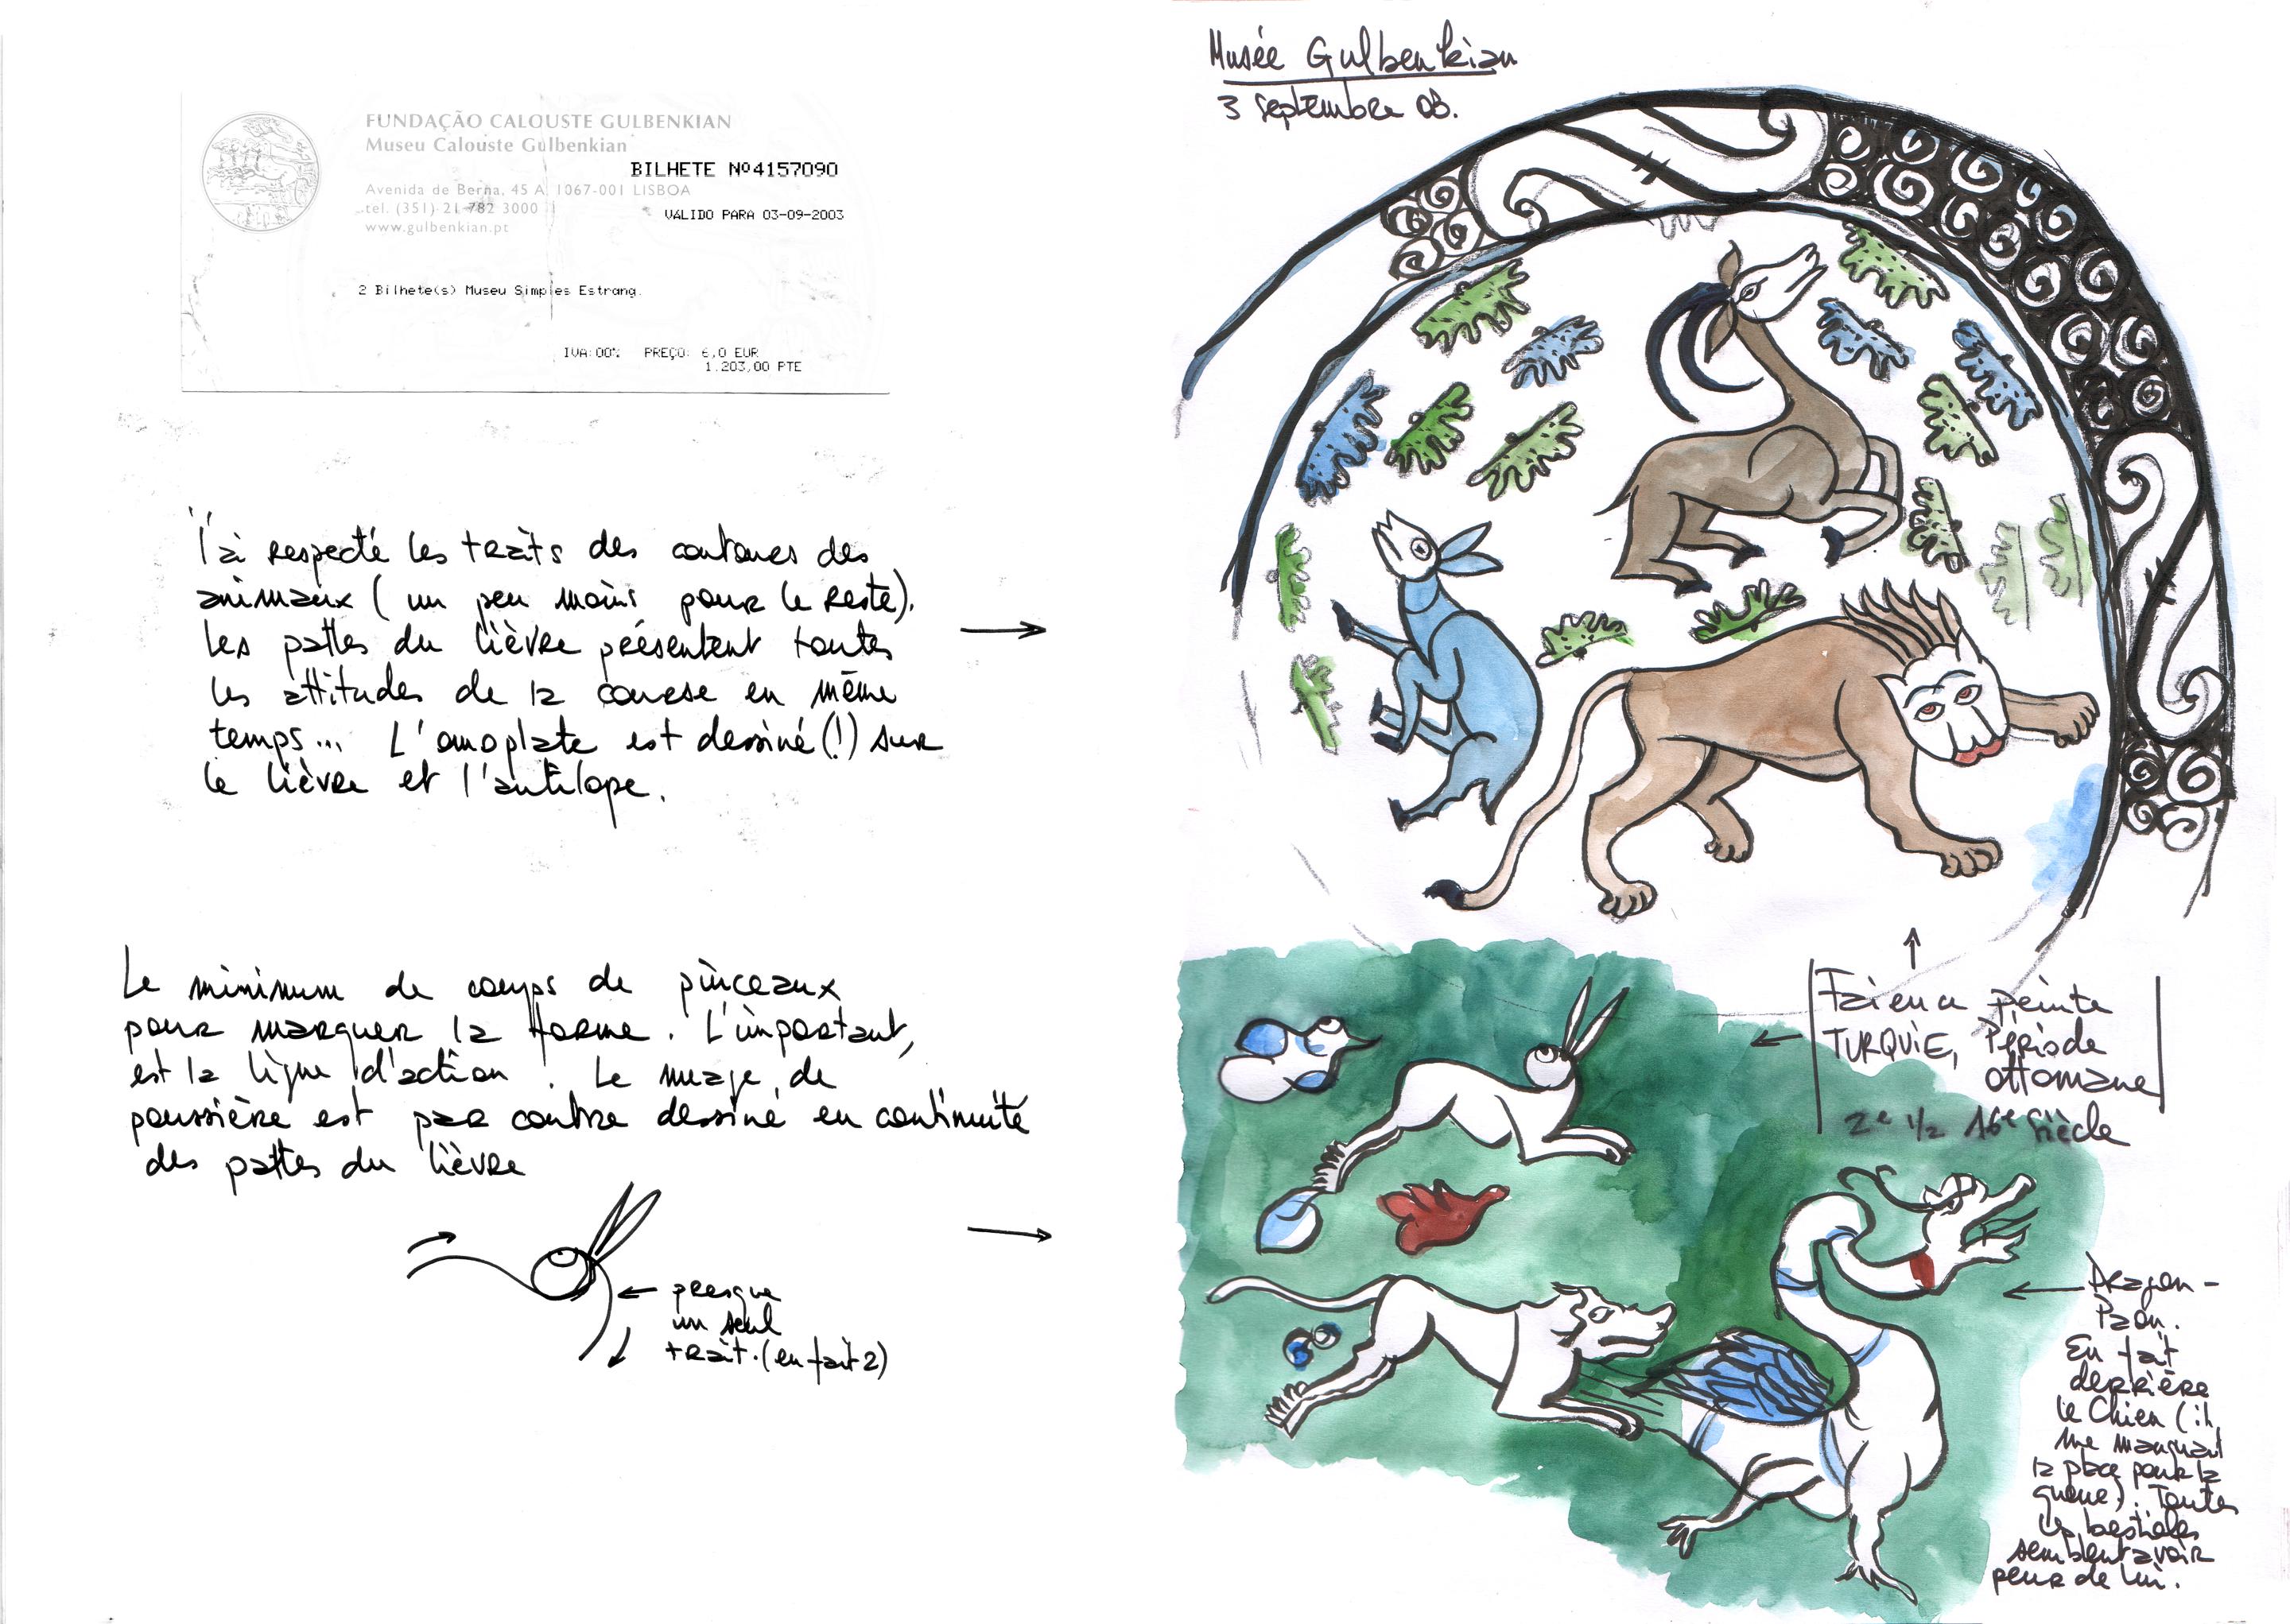 FUNDAÇÃO CALOUSTE GULBENKIAN
Museu Calouste Gulbenkian
BILHETE Nº4157090
Avenida de Berna, 45 A 1067-001 LISBOA
tel. (351) 21 782 3000
VALIDO PARA 03-09-2003
www.gulbenkian.pt
2 Bilhete(s) Museu Simples Estrang.
IVA:00% PREÇO: 6,0 EUR
1.203,00 PTE
J'ai respecté les traits des contours des
animaux (un peu moins pour le reste).
Les pattes du lièvre présentent toutes
les attitudes de la course en même
temps... L'omoplate est dessiné(!) sur
le lièvre et l'antilope.
Le minimum de coups de pinceaux
pour marquer la forme. L'important,
est la ligne d'action. Le nuage de
poussière est par contre dessiné en continuité
des pattes du lièvre
presque
un seul
trait. (en fait 2)
Musée Gulbenkian
3 septembre 03.
Faience peinte
TURQUIE, Période
ottomane
2e 1/2 16e Siècle
Dragon-
Paon.
En fait
derrière
le Chien (il
me manquait
la place pour la
queue). Toutes
les bestioles
semblent avoir
peur de lui.